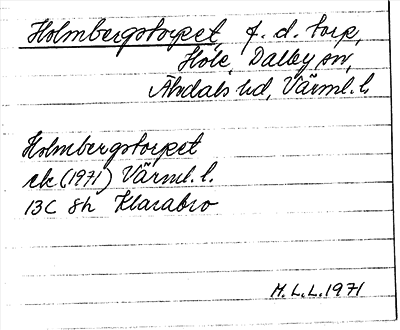 Holmbergstorpet, f. d. torp,
Höle, Dalby sn,
Älvdals hd, Värml. l.
Holmbergstorpet
ek (1971) Värml. l.
13C 8h Klarabro
M. L. L. 1971